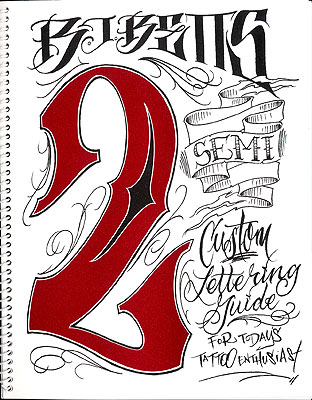 BJ BETTS
2
SEMI
Custom
Lettering
Guide
FOR TODAYS
TATTOO ENTHUSIAST